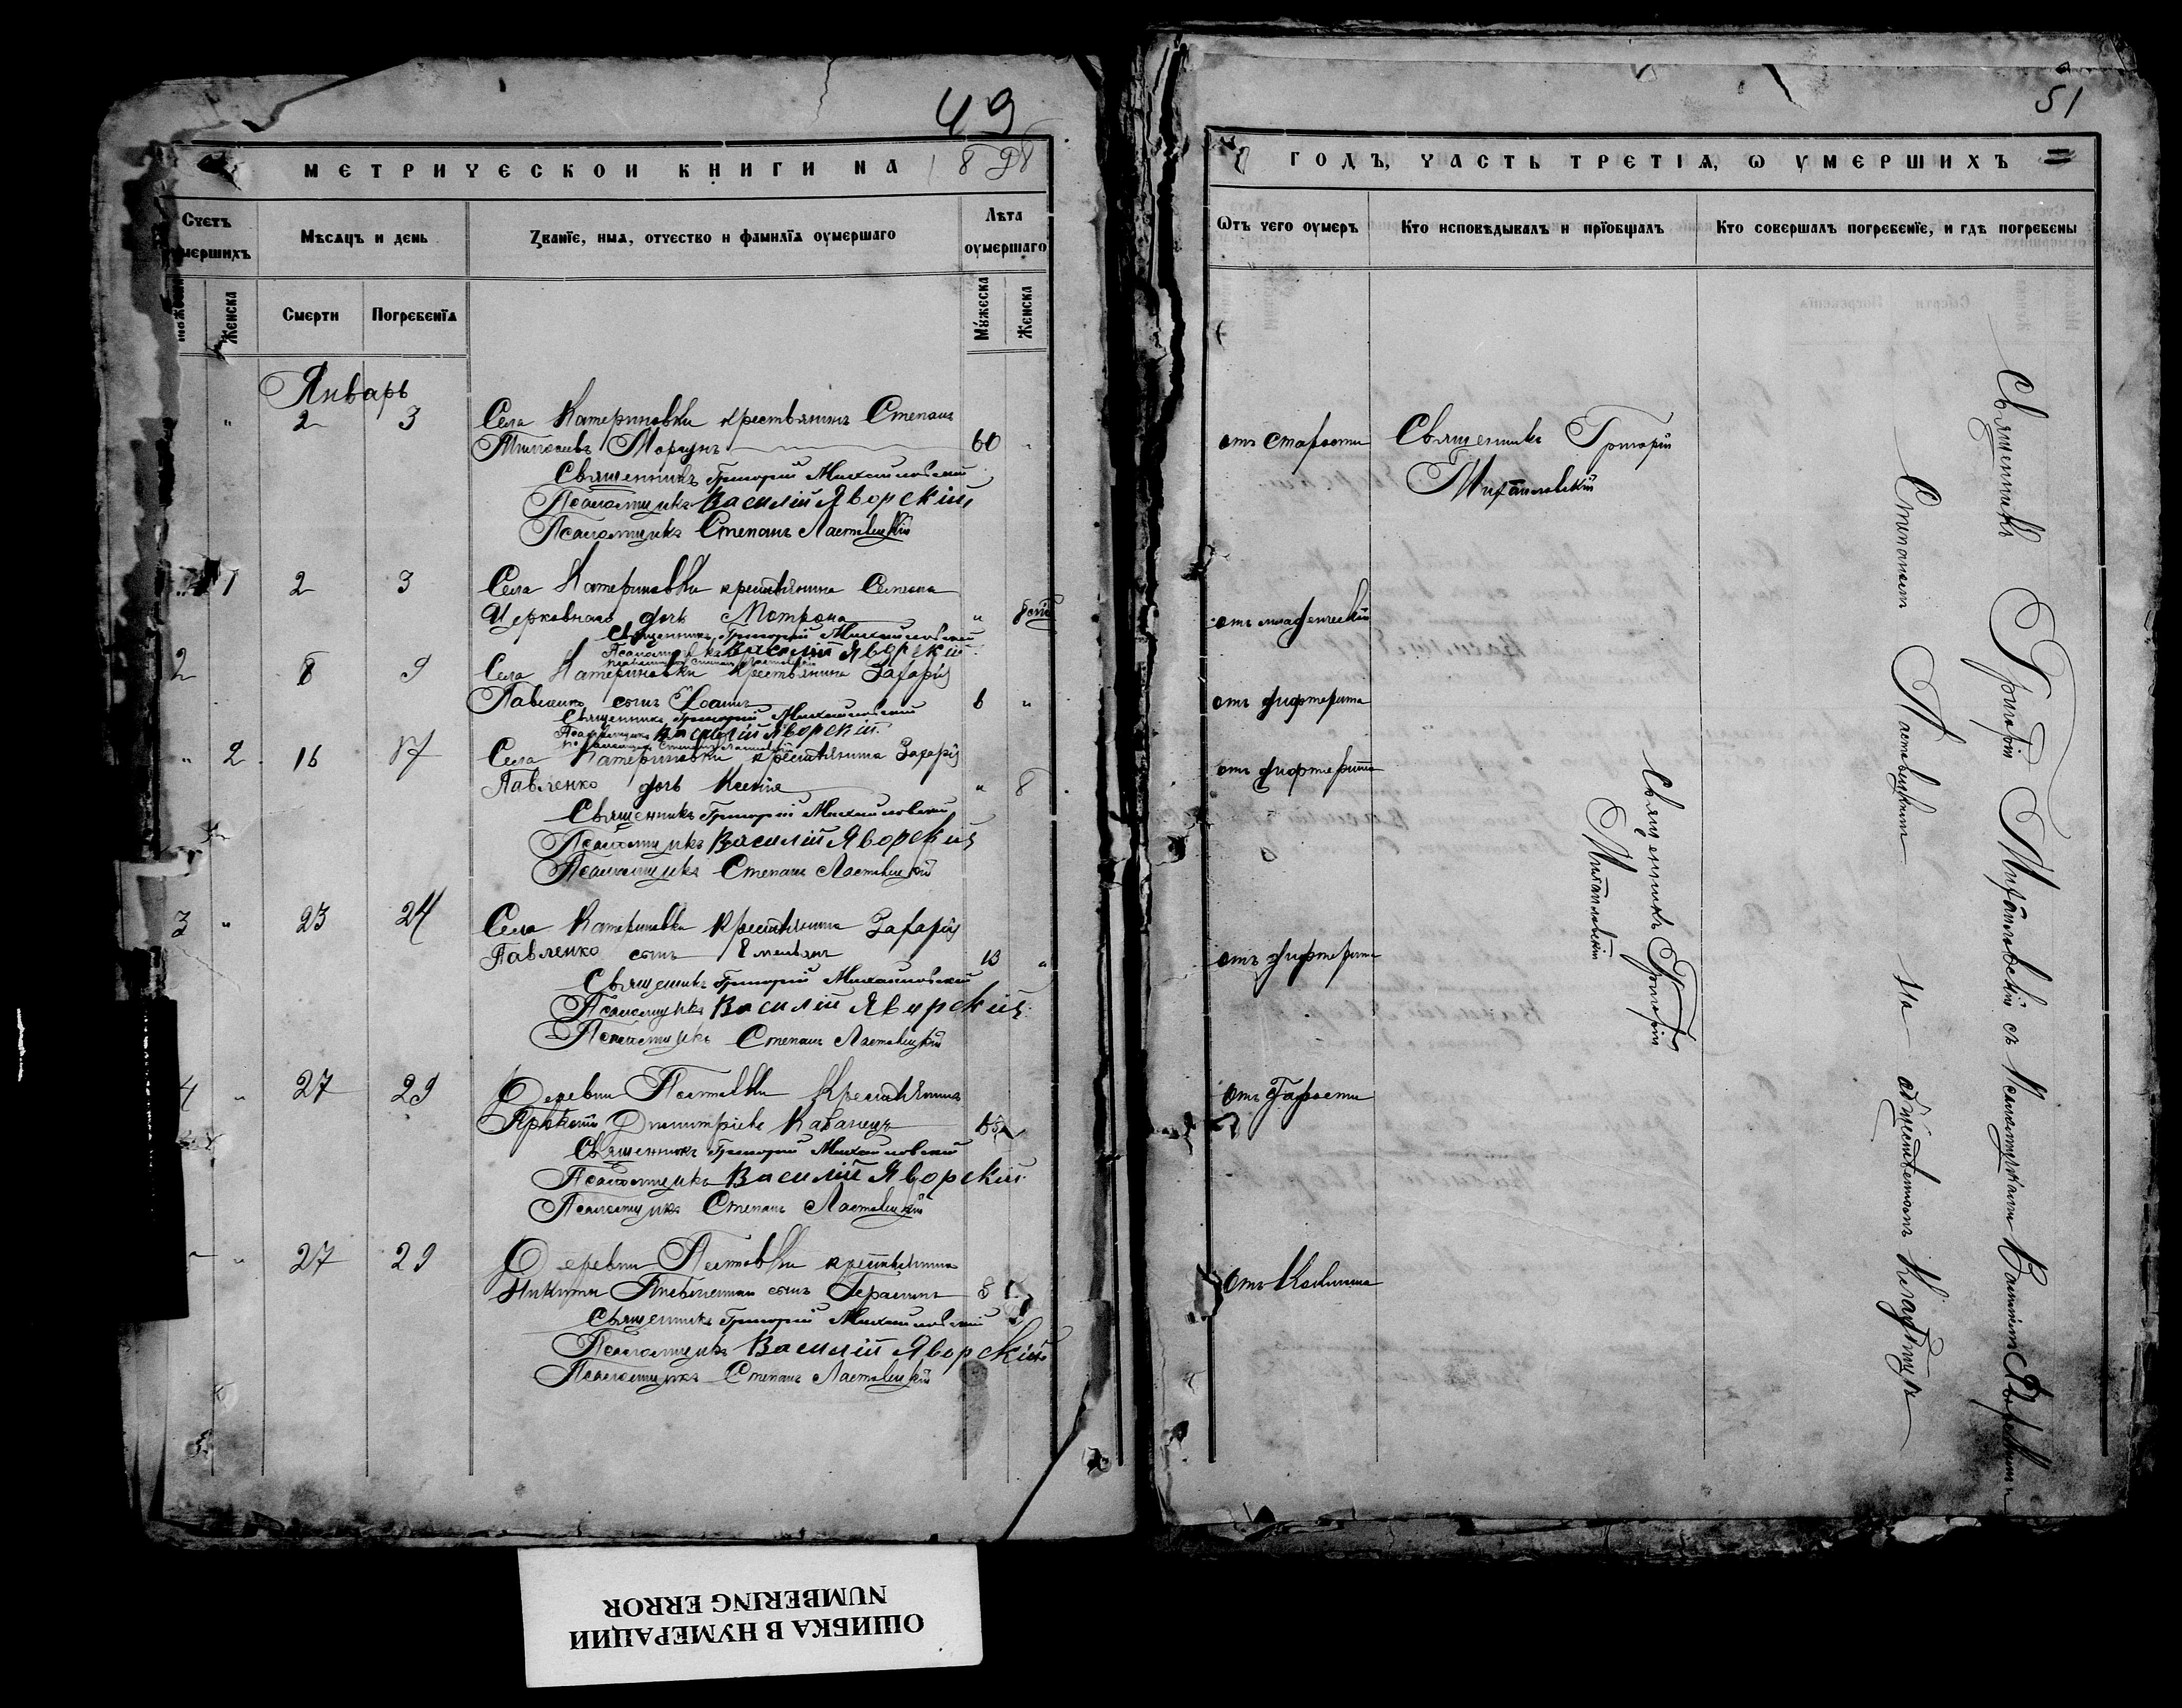 49
МЕТРИЧЕСКОЙ КНИГИ НА 1898
Счетъ умершихъ
Мѣсяцъ и день
Званїе, имя, отчество и фамилїя оумершаго
Лѣта оумершаго
Женска
Смерти
Погребенїя
Мужеска
Женска
Январь
" 2 3 Села Катериновки крестьянинъ Степанъ
Моргунъ 60 "
Священникъ Григорій Михайловскій
Псаломщикъ Василій Яворскій
Псаломщикъ Степанъ Ластовецкій
1 2 3 Села Катериновки крестьянина
Церковнаго дочь Матрона "
Священникъ Григорій Михайловскій
Псаломщикъ Василій Яворскій
Псаломщикъ Степанъ Ластовецкій
2 8 9 Села Катериновки крестьянина Захарія
Павленко сынъ Іоаннъ 6 "
Священникъ Григорій Михайловскій
Псаломщикъ Василій Яворскій
Псаломщикъ Степанъ Ластовецкій
" 2 16 17 Села Катериновки крестьянина Захарія
Павленко дочь Ксенія " 8
Священникъ Григорій Михайловскій
Псаломщикъ Василій Яворскій
Псаломщикъ Степанъ Ластовецкій
3 " 23 24 Села Катериновки крестьянина Захарія
Павленко сынъ Емельянъ 13 "
Священникъ Григорій Михайловскій
Псаломщикъ Василій Яворскій
Псаломщикъ Степанъ Ластовецкій
4 " 27 29 Деревни крестьянина
Димитріевъ Кабанецъ
Священникъ Григорій Михайловскій
Псаломщикъ Василій Яворскій
Псаломщикъ Степанъ Ластовецкій
" 27 29 Деревни крестьянина
Никиты сынъ Герасимъ
Священникъ Григорій Михайловскій
Псаломщикъ Василій Яворскій
Псаломщикъ Степанъ Ластовецкій
51
ГОДЪ, ЧАСТЬ ТРЕТІЯ, Ѡ УМЕРШИХЪ
Ѿтъ чего оумеръ
Кто исповѣдывалъ и прїобщалъ
Кто совершалъ погребенїе, и гдѣ погребены
отъ старости
Священникъ Григорій
Михайловскій
отъ младенческой
отъ дифтерита
отъ дифтерита
отъ дифтерита
отъ старости
отъ Коклюша
Священникъ Григорій
Михайловскій
Священникъ Григорій Михайловскій съ Псаломщиками Василіемъ Яворскимъ и
Степаномъ Ластовецкимъ на общественномъ кладбищѣ
ОШИБКА В НУМЕРАЦИИ
NUMBERING ERROR